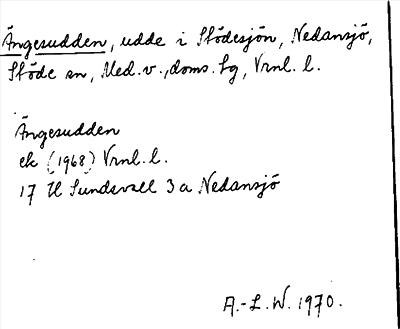 Ängesudden, udde i Stödesjön, Nedansjö,
Stöde sn, Med. v., doms. sg, Vrnl. l.
Ängesudden
ek (1968) Vrnl. l.
17 H Sundsvall 3 a Nedansjö
A.-L. W. 1970.